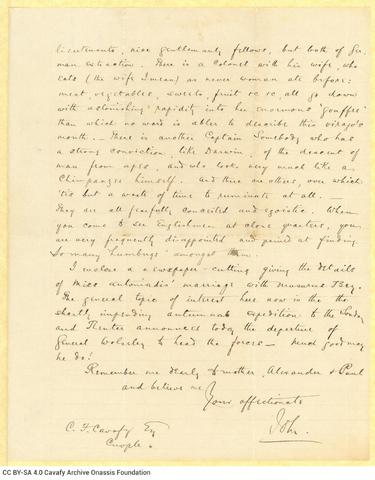 lieutenants, nice gentlemanly fellows, but both of Ger-
man extraction. There is a Colonel with his wife, who
eats (the wife I mean) as never woman ate before:
meat, vegetables, sweets, fruit &c &c, all go down
with astonishing rapidity into her enormous "gouffre"
than which no word is able to describe this virago's
mouth. — There is another Captain Somebody who has
a strong conviction, like Darwin, of the descent of
man from apes, and who looks very much like a
Chimpanzee himself. And there are others, over which
'tis but a waste of time to ruminate at all. —
They are all fearfully conceited and egoistic. When
you come to see Englishmen at close quarters, you
are very frequently disappointed and pained at finding
so many "humbugs" amongst them.
I enclose a newspaper-cutting giving the details
of Miss Antoniadis' marriage with Bey.
The general topic of interest here now is the
shortly impending autumnal expedition to the
and Reuter announced today the departure of
General Wolseley to head the forces — much good may
he do!
Remember me dearly to mother, Alexander & Paul
and believe me
Your affectionate
John.
C. F. Cavafy Esq
Cnople.
CC BY-SA 4.0 Cavafy Archive Onassis Foundation